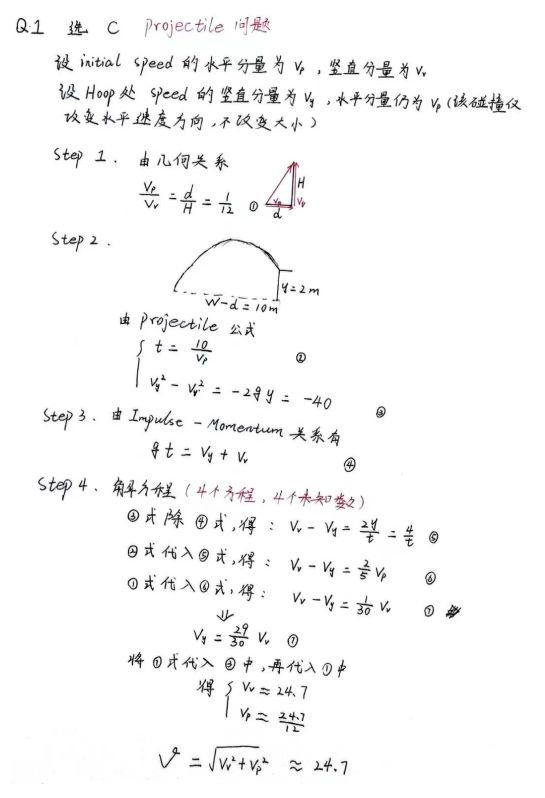 Q.1 选 C projectile 问题
设 initial speed 的水平分量为 Vₚ , 竖直分量为 Vᵥ
设 Hoop 处 speed 的竖直分量为 Vy , 水平分量仍为 Vₚ (该碰撞仅
改变水平速度方向, 不改变大小)
Step 1. 由几何关系
Vₚ/Vᵥ = d/H = 1/12 ①
H
Vₚ
Vₚ
d
Step 2.
y=2m
W-d=10m
由 projectile 公式
{ t = 10/Vₚ ②
Vy² - Vᵥ² = -2gy = -40 ③
Step 3. 由 Impulse - Momentum 关系有
gt = Vy + Vᵥ ④
Step 4. 解方程 (4个方程, 4个未知数)
③式除④式, 得: Vᵥ - Vy = 2y/t = 4/t ⑤
②式代入⑤式, 得: Vᵥ - Vy = 2/5 Vₚ ⑥
①式代入⑥式, 得: Vᵥ - Vy = 1/30 Vᵥ ⑦
⇓
Vy = 29/30 Vᵥ ⑦
将⑦式代入③中, 再代入①中
得 { Vᵥ ≈ 24.7
Vₚ ≈ 24.7/12
V = √(Vᵥ²+Vₚ²) ≈ 24.7